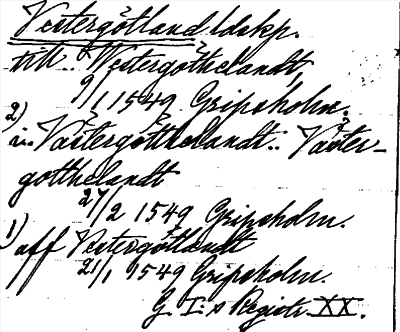 Vestergötland ldskp.
till Westergöthelandt,
9/1 1549 Gripsholm.
2) in Västergötthelandt.. Väster-
gotthelandt
27/2 1549 Gripsholm.
1) aff Vestergötlandt
21/1 1549 Gripsholm.
G. I:s Registr. XX.